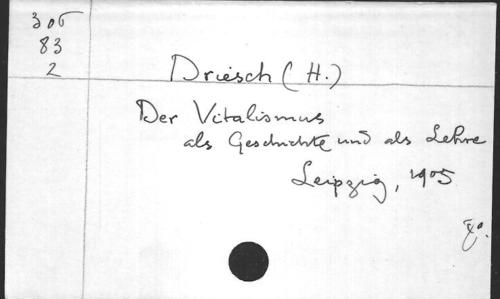 306
83
2
Driesch (H.)
Der Vitalismus
als Geschichte und als Lehre
Leipzig, 1905